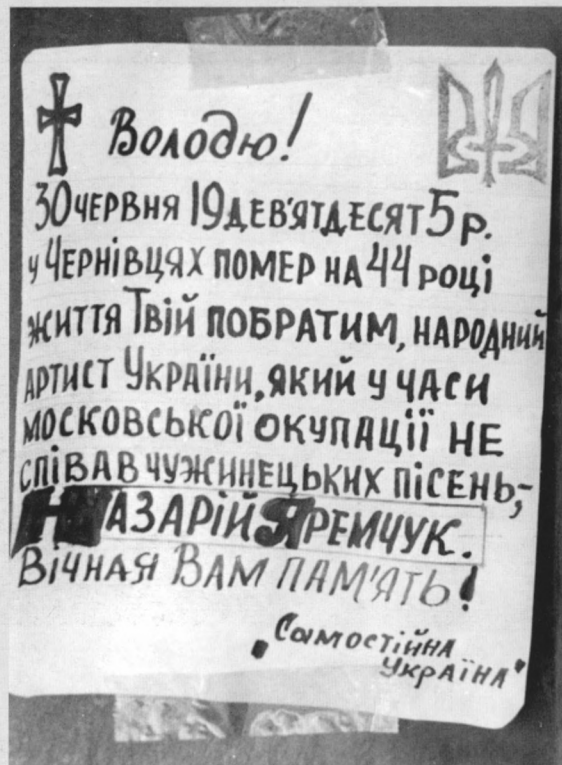 Володю!
30 червня 19дев'ятдесят5р.
у Чернівцях помер на 44 році
життя Твій побратим, народний
артист України, який у часи
московської окупації не
співав чужинецьких пісень,-
Назарій Яремчук.
Вічная Вам пам'ять!
„Самостійна
Україна"